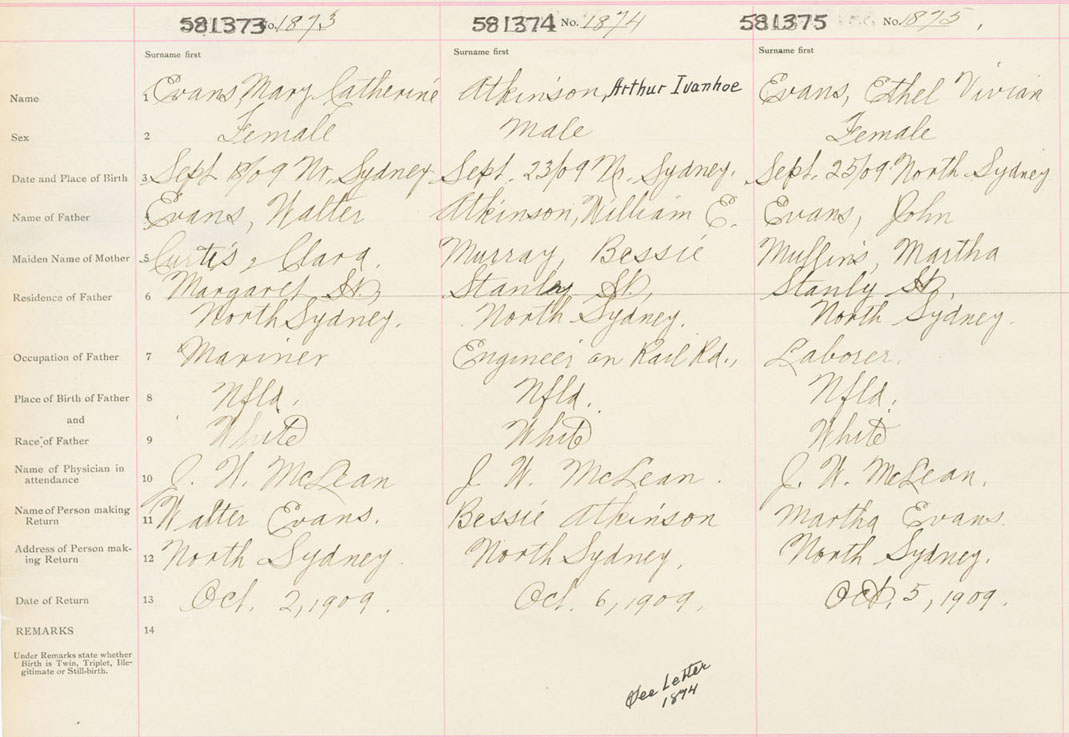 581373 No. 1873 581374 No. 1874 581375 No. 1875
Surname first Surname first Surname first
Name 1 Evans, Mary Catherine Atkinson, Arthur Ivanhoe Evans, Ethel Vivian
Sex 2 Female Male Female
Date and Place of Birth 3 Sept 18/09 Nr. Sydney Sept. 23/09 Nr. Sydney. Sept. 25/09 North Sydney
Name of Father Evans, Walter Atkinson, William E. Evans, John
Maiden Name of Mother 5 Curtis, Clara. Murray, Bessie Mullins, Martha
Residence of Father 6 Margaret St., Stanley St., Stanly St.,
North Sydney. North Sydney. North Sydney.
Occupation of Father 7 Mariner Engineer on Rail Rd., Laborer.
Place of Birth of Father 8 Nfld. Nfld. Nfld.
and
Race of Father 9 White White White
Name of Physician in
attendance 10 J. W. McLean J. W. McLean. J. W. McLean.
Name of Person making
Return 11 Walter Evans. Bessie Atkinson Martha Evans.
Address of Person mak-
ing Return 12 North Sydney. North Sydney. North Sydney.
Date of Return 13 Oct. 2, 1909. Oct. 6, 1909. Oct. 5, 1909.
REMARKS 14
Under Remarks state whether
Birth is Twin, Triplet, Ille-
gitimate or Still-birth.
See Letter
1874